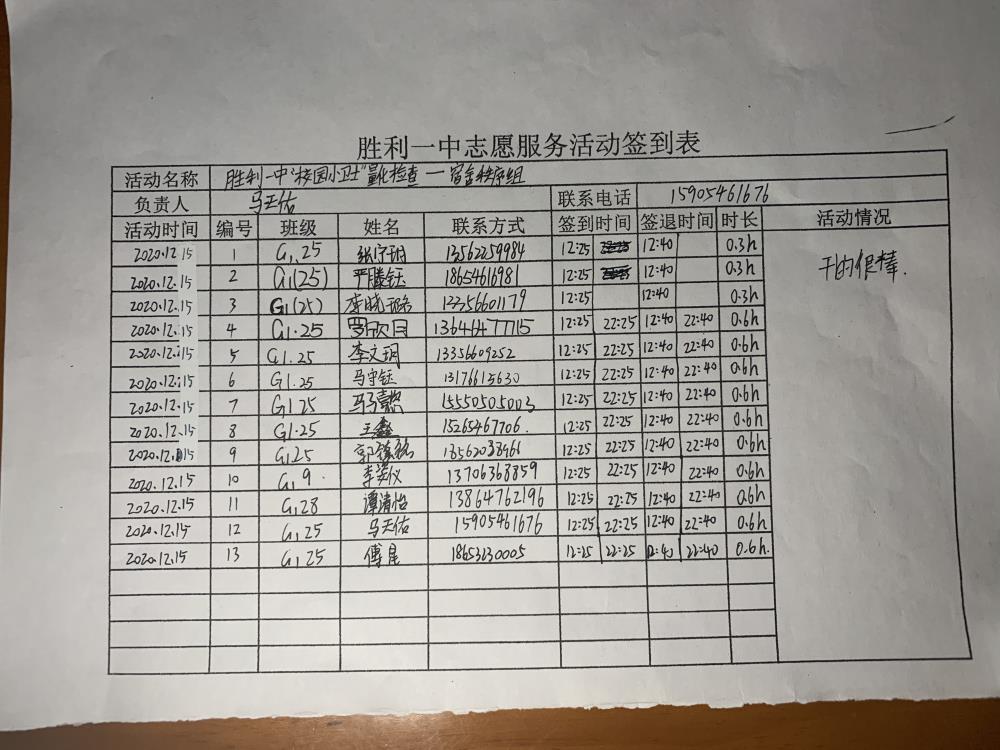 胜利一中志愿服务活动签到表
活动名称 胜利一中"校园小卫士"量化检查—宿舍秩序组
负责人 马天佑 联系电话 15905461676
活动时间 编号 班级 姓名 联系方式 签到时间 签退时间 时长 活动情况
2020.12.15 1 G1.25 12:25 12:40 0.3h 干的很棒.
2020.12.15 2 G1(25) 严滕钰 18654616981 12:25 12:40 0.3h
2020.12.15 3 G1(25) 李晓璐 13356601179 12:25 12:40 0.3h
2020.12.15 4 G1.25 13646477715 12:25 22:25 12:40 22:40 0.6h
2020.12.15 5 G1.25 李文玥 13356609252 12:25 22:25 12:40 22:40 0.6h
2020.12.15 6 G1.25 马守钰 13176615630 12:25 22:25 12:40 22:40 0.6h
2020.12.15 7 G1.25 15550505003 12:25 22:25 12:40 22:40 0.6h
2020.12.15 8 G1.25 王鑫 15265467706. 12:25 22:25 12:40 22:40 0.6h
2020.12.15 9 G1.25 12:25 22:25 12:40 22:40 0.6h
2020.12.15 10 G1.9 李姿仪 13706368859 12:25 22:25 12:40 22:40 0.6h
2020.12.15 11 G1.28 谭清怡 13864762196 12:25 22:25 12:40 22:40 0.6h
2020.12.15 12 G1.25 马天佑 15905461676 12:25 22:25 12:40 22:40 0.6h
2020.12.15 13 G1.25 傅星 18653230005 12:25 22:25 12:40 22:40 0.6h.